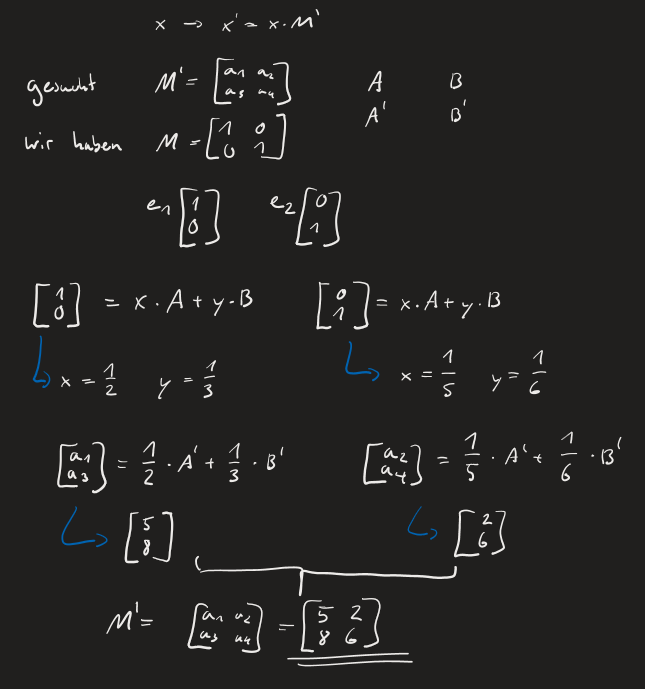 x → x' = x · M'
gesucht M' = [a1 a2 A B
a3 a4] A' B'
wir haben M = [1 0
0 1]
e1 [1 e2 [0
0] 1]
[1 0] = x · A + y · B [0 1] = x · A + y · B
x = 1/2 y = 1/3 x = 1/5 y = 1/6
[a1 a3] = 1/2 · A' + 1/3 · B' [a2 a4] = 1/5 · A' + 1/6 · B'
[5 8] [2 6]
M' = [a1 a2 = [5 2
a3 a4] 8 6]